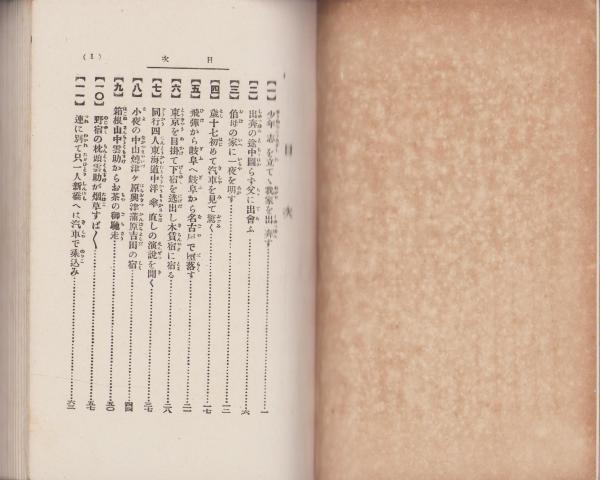 次目
(1)
目次
【一】少年志を立てゝ我家を出奔す……一
【二】出奔の途中圖らず父に出會ふ……六
【三】伯母の家に一夜を明す……一三
【四】歳十七初めて汽車を見て驚く……一七
【五】飛彈から岐阜へ岐阜から名古屋で落す……二一
【六】東京を目掛て下宿を逃出し木賃宿に宿る……二八
【七】同行四人東海道中洋傘直しの演説を聞く……三七
【八】小夜の中山燒津ヶ原興津蒲原吉田の宿……四四
【九】箱根山中雲助からお茶の御馳走……五〇
【一〇】野宿の枕頭雲助が烟草すぱ〱……五七
【一一】連に別て只一人新橋へは汽車で乘込み……六三